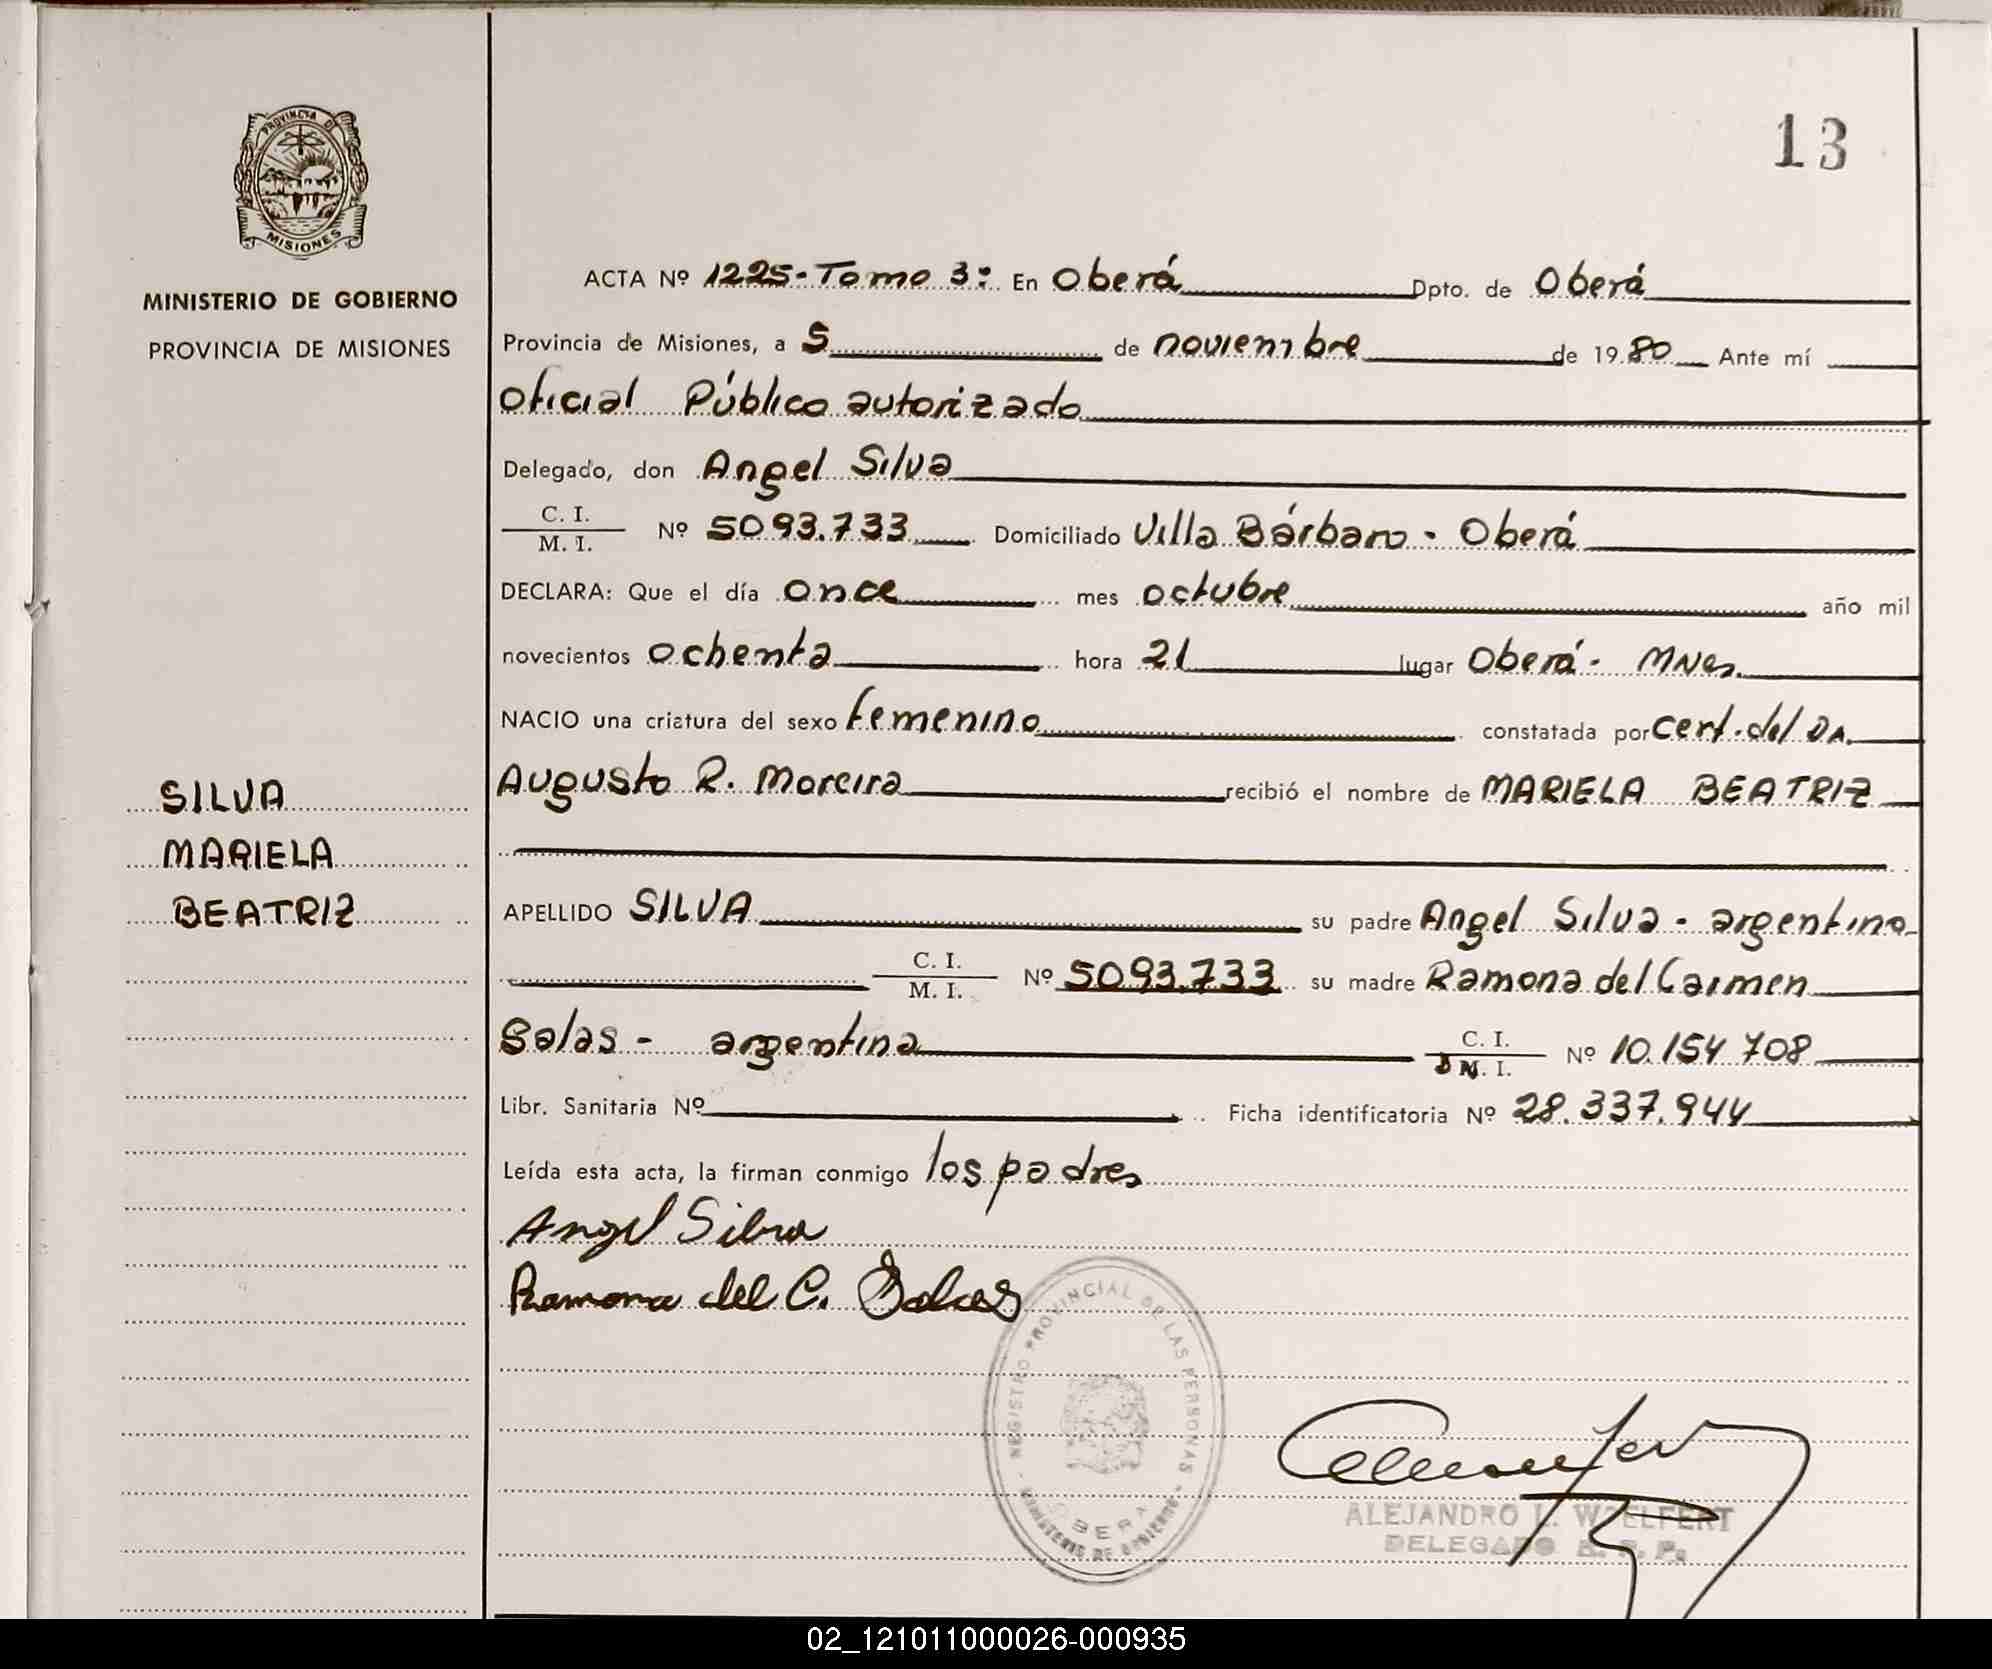 PROVINCIA DE
MISIONES
MINISTERIO DE GOBIERNO
PROVINCIA DE MISIONES
SILVA
MARIELA
BEATRIZ
13
ACTA Nº 1225-Tomo 3: En Oberá Dpto. de Oberá
Provincia de Misiones, a 5 de noviembre de 1980 Ante mí
Oficial Público autorizado
Delegado, don Angel Silva
C. I.
M. I. Nº 5093.733 Domiciliado Villa Bárbaro - Oberá
DECLARA: Que el día once mes octubre año mil
novecientos ochenta hora 21 lugar Oberá - MNes.
NACIO una criatura del sexo femenino constatada por cert. del DR.
Augusto R. Moreira recibió el nombre de MARIELA BEATRIZ
APELLIDO SILVA su padre Angel Silva - argentino
C. I.
M. I. Nº 5093.733 su madre Ramona del Carmen
Salas - argentina C. I.
M. I. Nº 10.154 708
Libr. Sanitaria Nº Ficha identificatoria Nº 28.337.944
Leída esta acta, la firman conmigo los padres
Angel Silva
Ramona del C. Salas
REGISTRO PROVINCIAL DE LAS PERSONAS
OBERA
MINISTERIO DE GOBIERNO
ALEJANDRO L. WOELFERT
DELEGADO R. P. P.
02_121011000026-000935